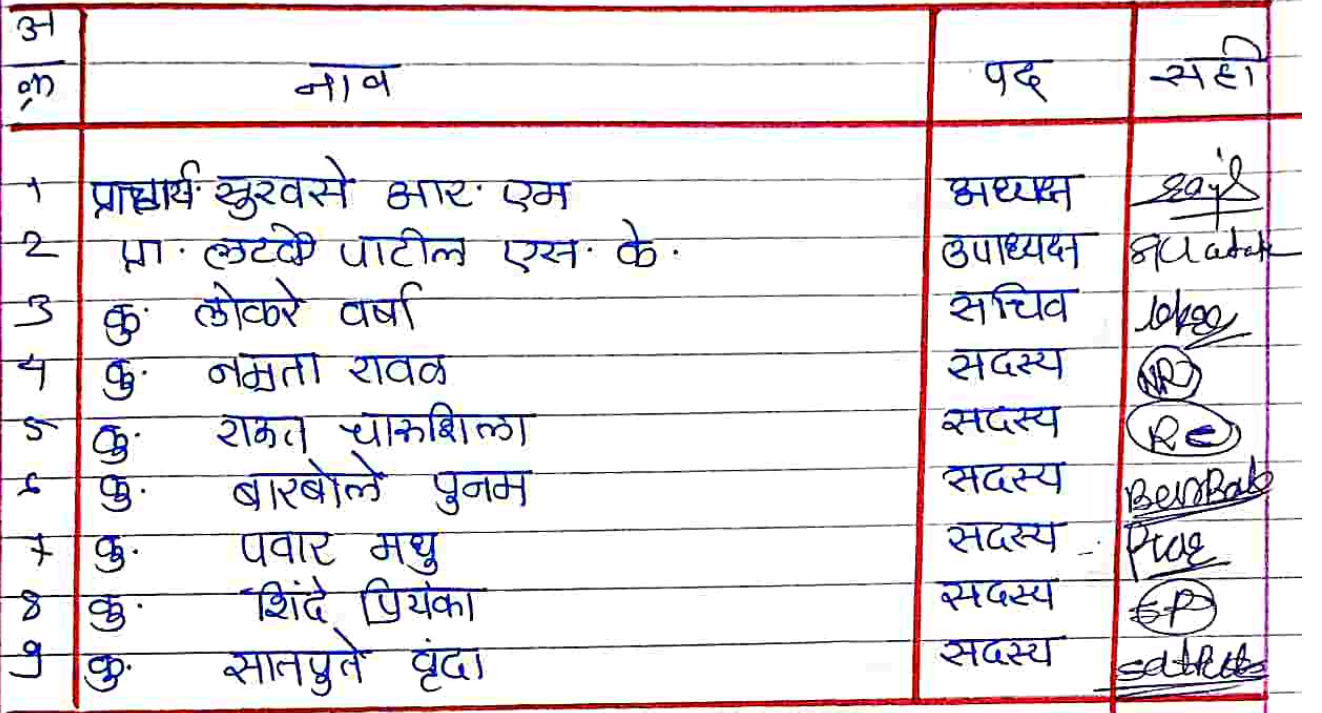 अ
क्र नाव पद सही
1 प्राचार्य सुरवसे आर. एम अध्यक्ष
2 प्रा. लटके पाटील एस. के. उपाध्यक्ष
3 कु. लोकरे वर्षा सचिव
4 कु. नम्रता रावळ सदस्य
5 कु. राऊत चारुशिला सदस्य
6 कु. बारबोले पुनम सदस्य
7 कु. पवार मधु सदस्य
8 कु. शिंदे प्रियंका सदस्य
9 कु. सातपुते वृंदा सदस्य